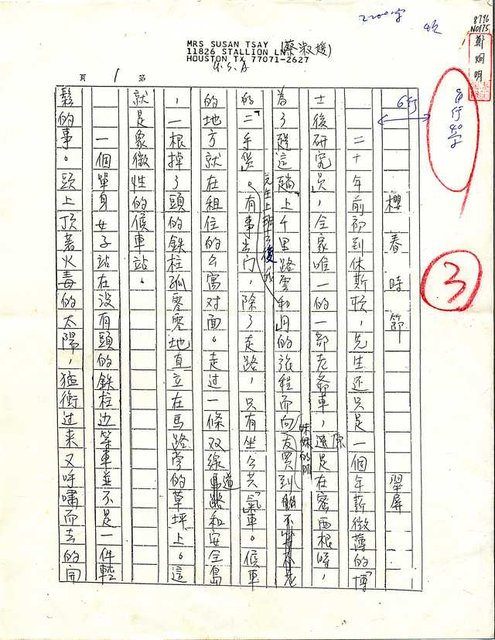 2200字
8796
N0175
鄭炯明
MRS SUSAN TSAY (蔡淑媛)
11826 STALLION LN
HOUSTON TX 77071-2627
U.S.A
頁 1 第
6行
3
櫻春時節 翠屏
二十年前初到休斯頓,先生還只是一個年薪微薄的「博
士後研究員」,全家唯一的一部老爺車,還是在密西根時,
為了趕這趟上千里路雲和月的旅程而向友
的「二手貨」。有事出門,除了走路,只有坐公共汽車。候車
先生上班去後
的地方就在租住的公寓對面。走過一條双線車道和安全島
,一根掉了頭的鉄柱孤零零地直立在馬路旁的草坪上。這
就是象徵性的候車站。
一個單身女子站在沒有頭的鉄柱边等車並不是一件輕
鬆的事。頭上頂著火毒的太陽,猛衝过来又呼嘯而去的